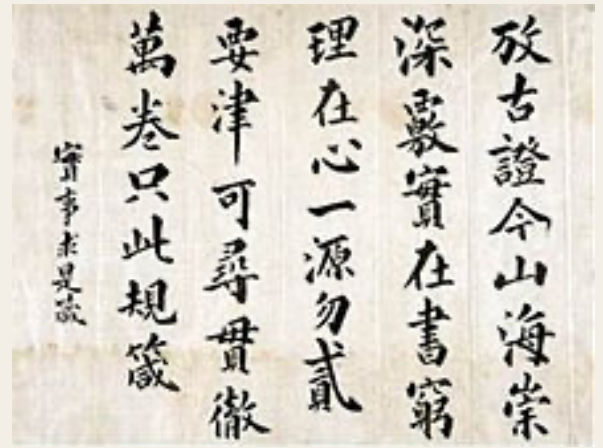 攷古證今山海崇
深覈實在書窮
理在心一源勿貳
要津可尋貫徹
萬卷只此規箴
實事求是箴